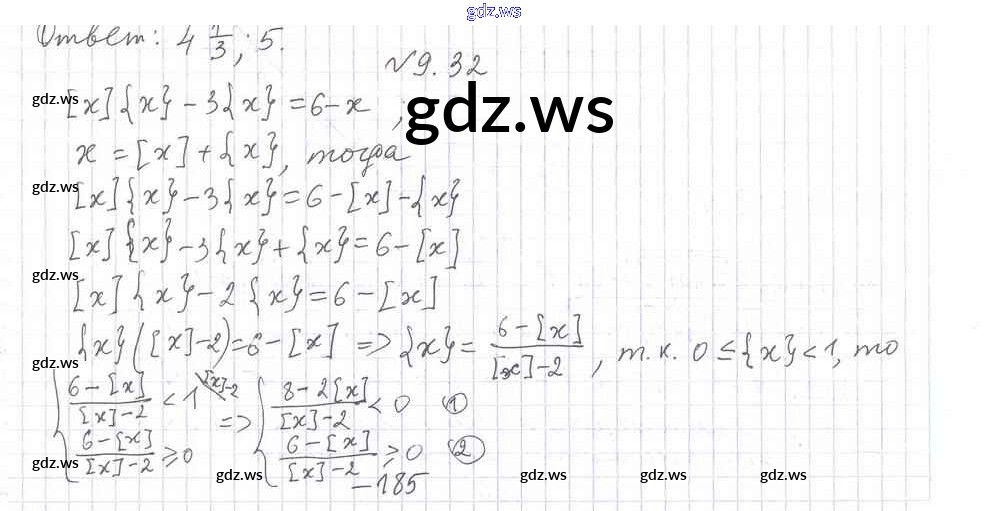 gdz.ws
Ответ: 4 1/3; 5.
№9.32
gdz.ws [x]{x} - 3{x} = 6 - x ; gdz.ws
x = [x] + {x}, тогда
gdz.ws [x]{x} - 3{x} = 6 - [x] - {x}
[x]{x} - 3{x} + {x} = 6 - [x]
gdz.ws
[x]{x} - 2{x} = 6 - [x]
{x}([x]-2) = 6 - [x] => {x} = (6 - [x])/([x]-2), т.к. 0 ≤ {x} < 1, то
gdz.ws
{ (6 - [x])/([x]-2) < 1 [x]-2 => { (8 - 2[x])/([x]-2) < 0 ①
gdz.ws (6 - [x])/([x]-2) ≥ 0 (6 - [x])/([x]-2) ≥ 0 ②
gdz.ws gdz.ws gdz.ws gdz.ws
-185